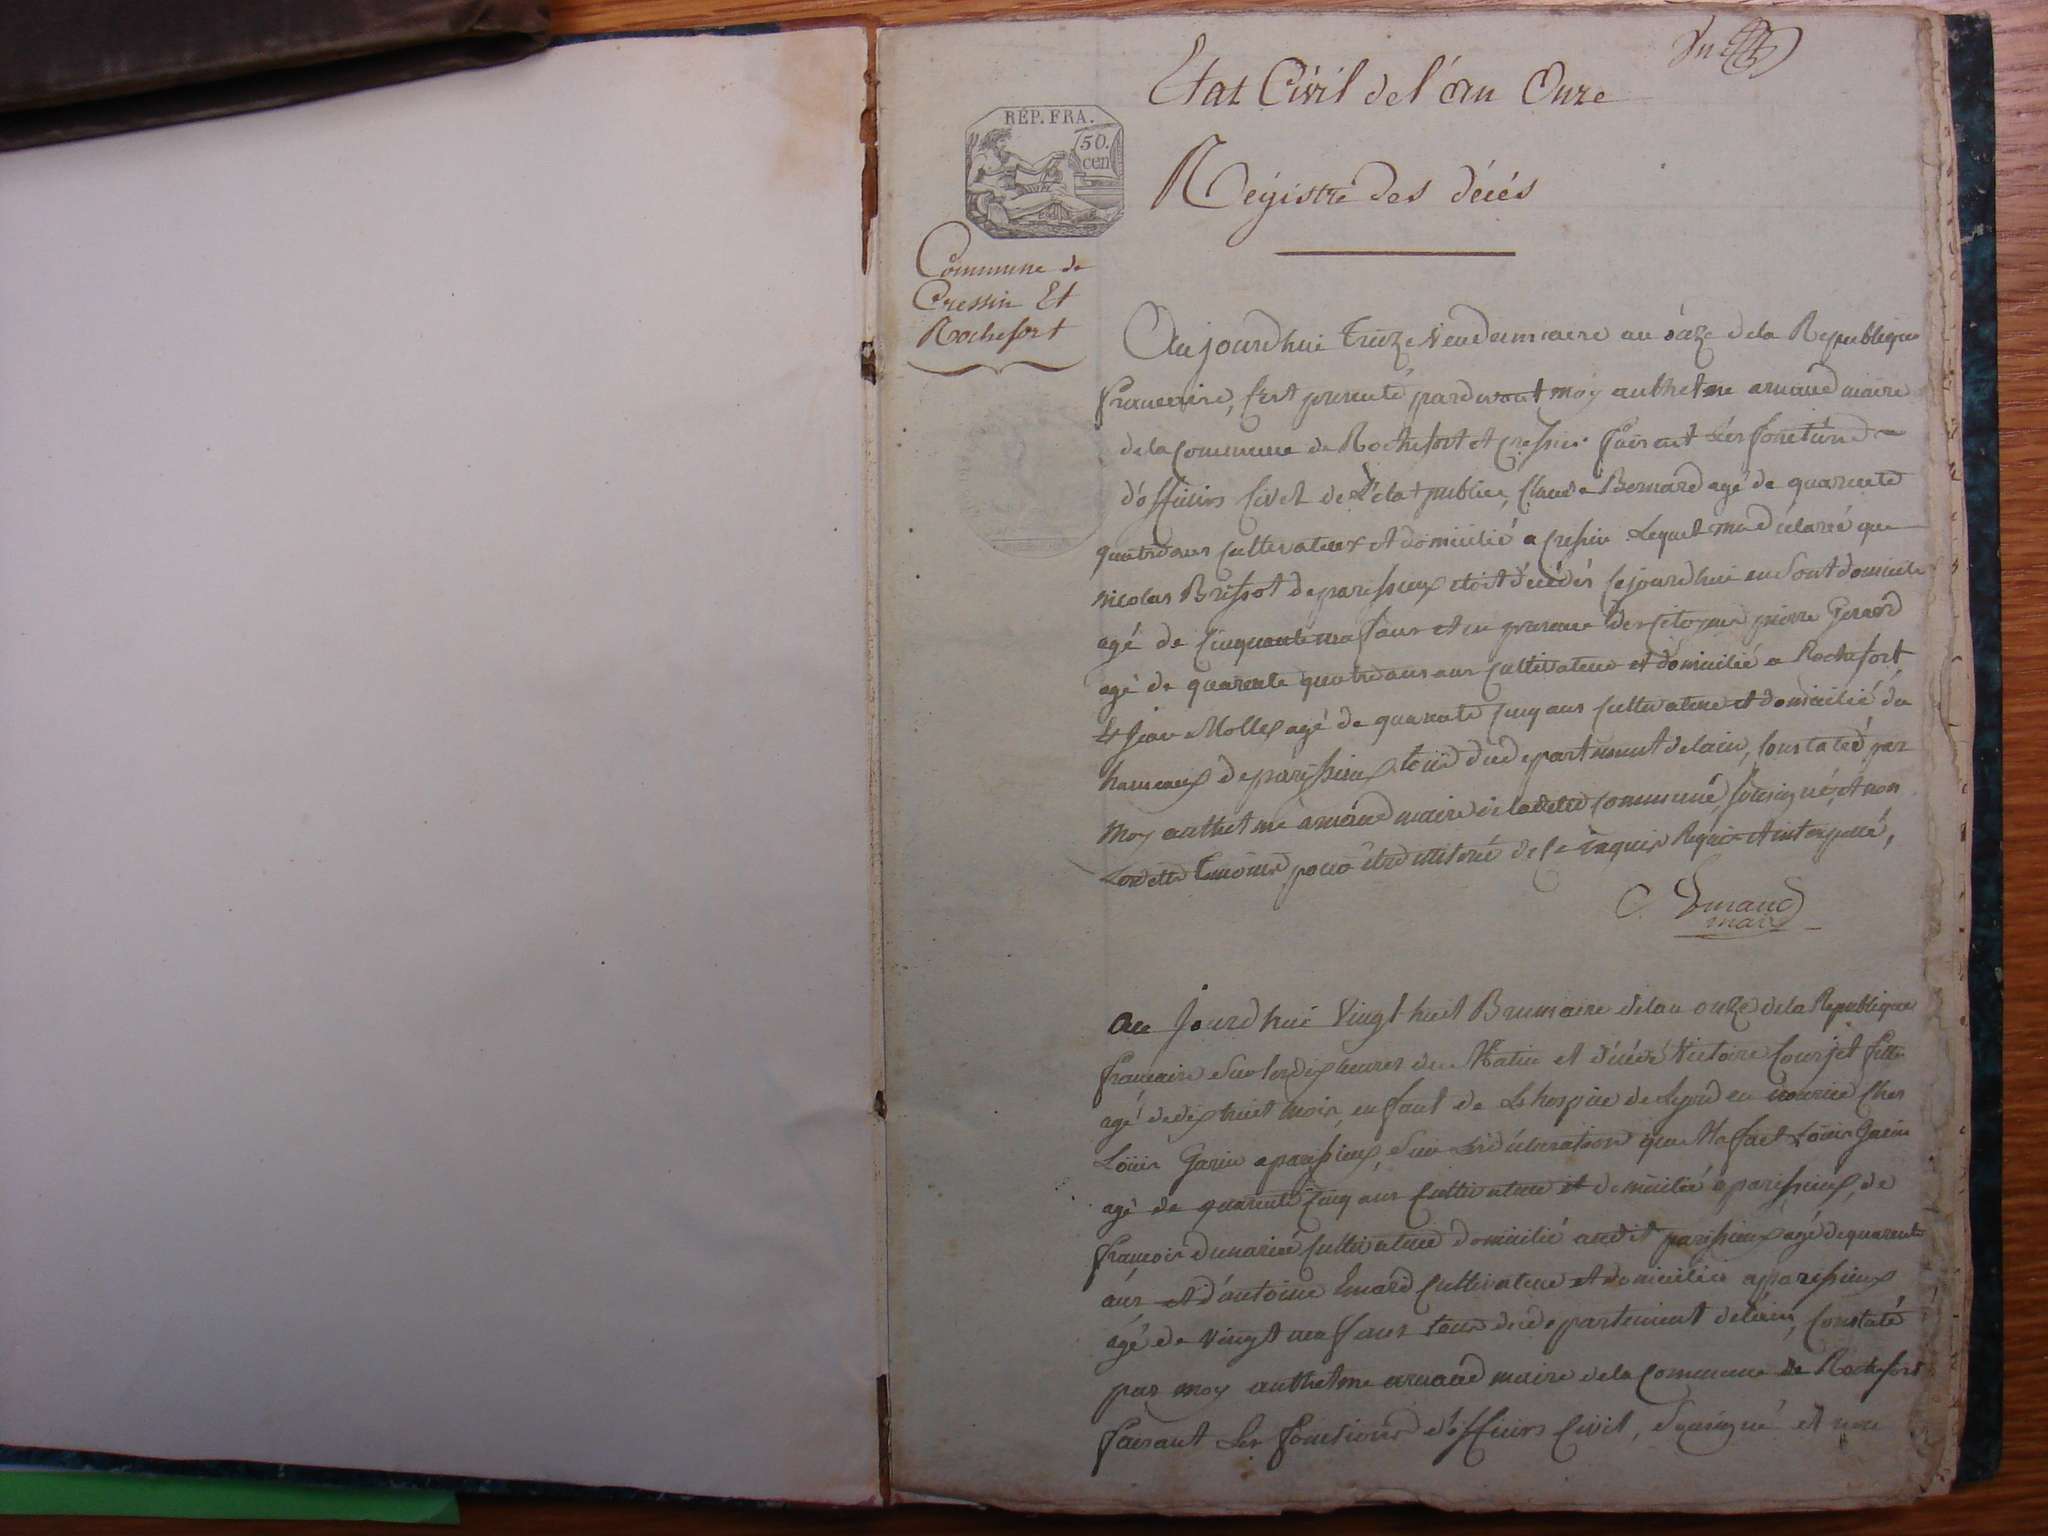 Etat Civil de l'an Onze
REP. FRA.
50.
cen
Registre des décés
Commune de
Cressin Et
Rochefort
Aujourdhui treize Vendemiaire an Oâze de la Republique
francaise, sest presenté pardevant moy anthelme arnaud maire
de la commune de Rochefort et Cressin faisant les fonction
d'officiers Civil de Letat public, Claude Bernard agé de quarente
quatre ans cultivateur et domicilié a Cressin Lequel ma déclaré que
nicolas Brissot de parissieux étoit décédés cejourdhui en sont domicile
agé de cinquante neuf ans et en presence des citoyens pierre Girard
agé de quarente quatre ans cultivateur et domicilié a Rochefort
Et Jean Mollex agé de quarente cinq ans cultivateur et domicilié du
hameaux de parissieux, tous du departement delain, Constaté par
Moy anthelme arnaud maire de ladite commune soussigné, et non
Lesdits temoins pour être de ce enquis Requis et interpellé,
maire
Au Jourdhui Vingt huit Brumaire delan onze de la Republique
francaise sur les dix heures du Matin et décédé Victoire Courjet fille
agé de dix huit mois, enfant de Lhospice de Lyon en nourice Ches
Loüis Garin a parissieux, Sur la déclaration que Ma fait Loüis Garin
agé de quarente cinq ans cultivateur et domicilié a parissieux, de
francois dumarest cultivateur domicilié audit parissieux agé de quarente
ans, et d'antoine Emard cultivateur et domicilier a parissieux
agé de vingt neuf ans tous du departement delain, Constaté
par moy anthelme arnaud maire de la commune de Rochefort
faisant Les fonctions d'officiers Civil, Soussigné et non